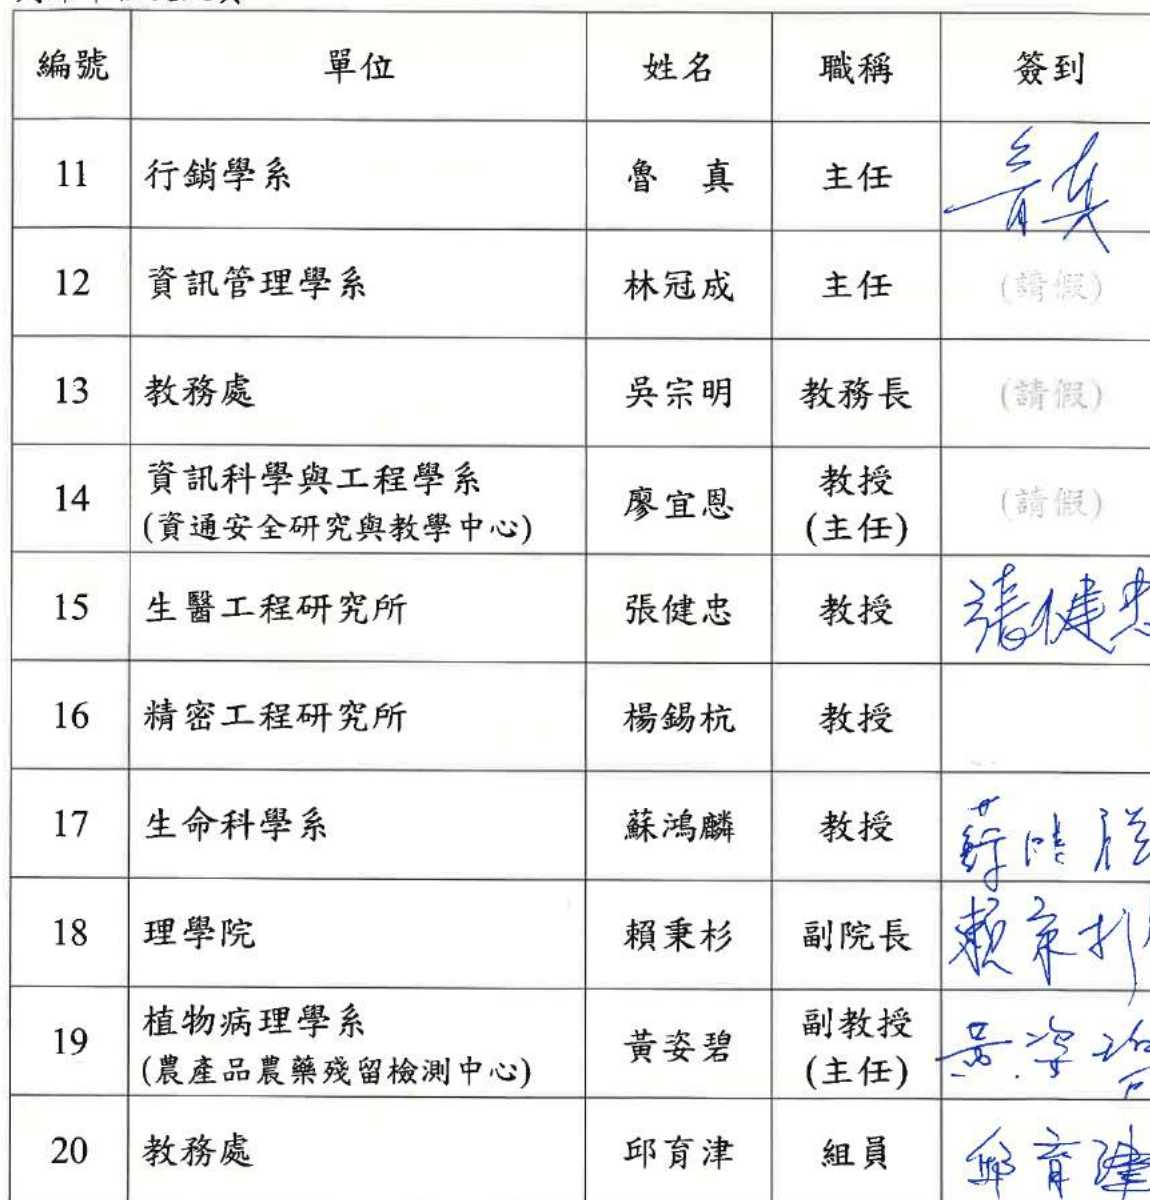 編號 單位 姓名 職稱 簽到
11 行銷學系 魯 真 主任 魯真
12 資訊管理學系 林冠成 主任 (請假)
13 教務處 吳宗明 教務長 (請假)
14 資訊科學與工程學系 廖宜恩 教授 (請假)
(資通安全研究與教學中心) (主任)
15 生醫工程研究所 張健忠 教授 張健忠
16 精密工程研究所 楊錫杭 教授
17 生命科學系 蘇鴻麟 教授
18 理學院 賴秉杉 副院長 賴秉杉
19 植物病理學系 黃姿碧 副教授 黃姿碧
(農產品農藥殘留檢測中心) (主任)
20 教務處 邱育津 組員 邱育津